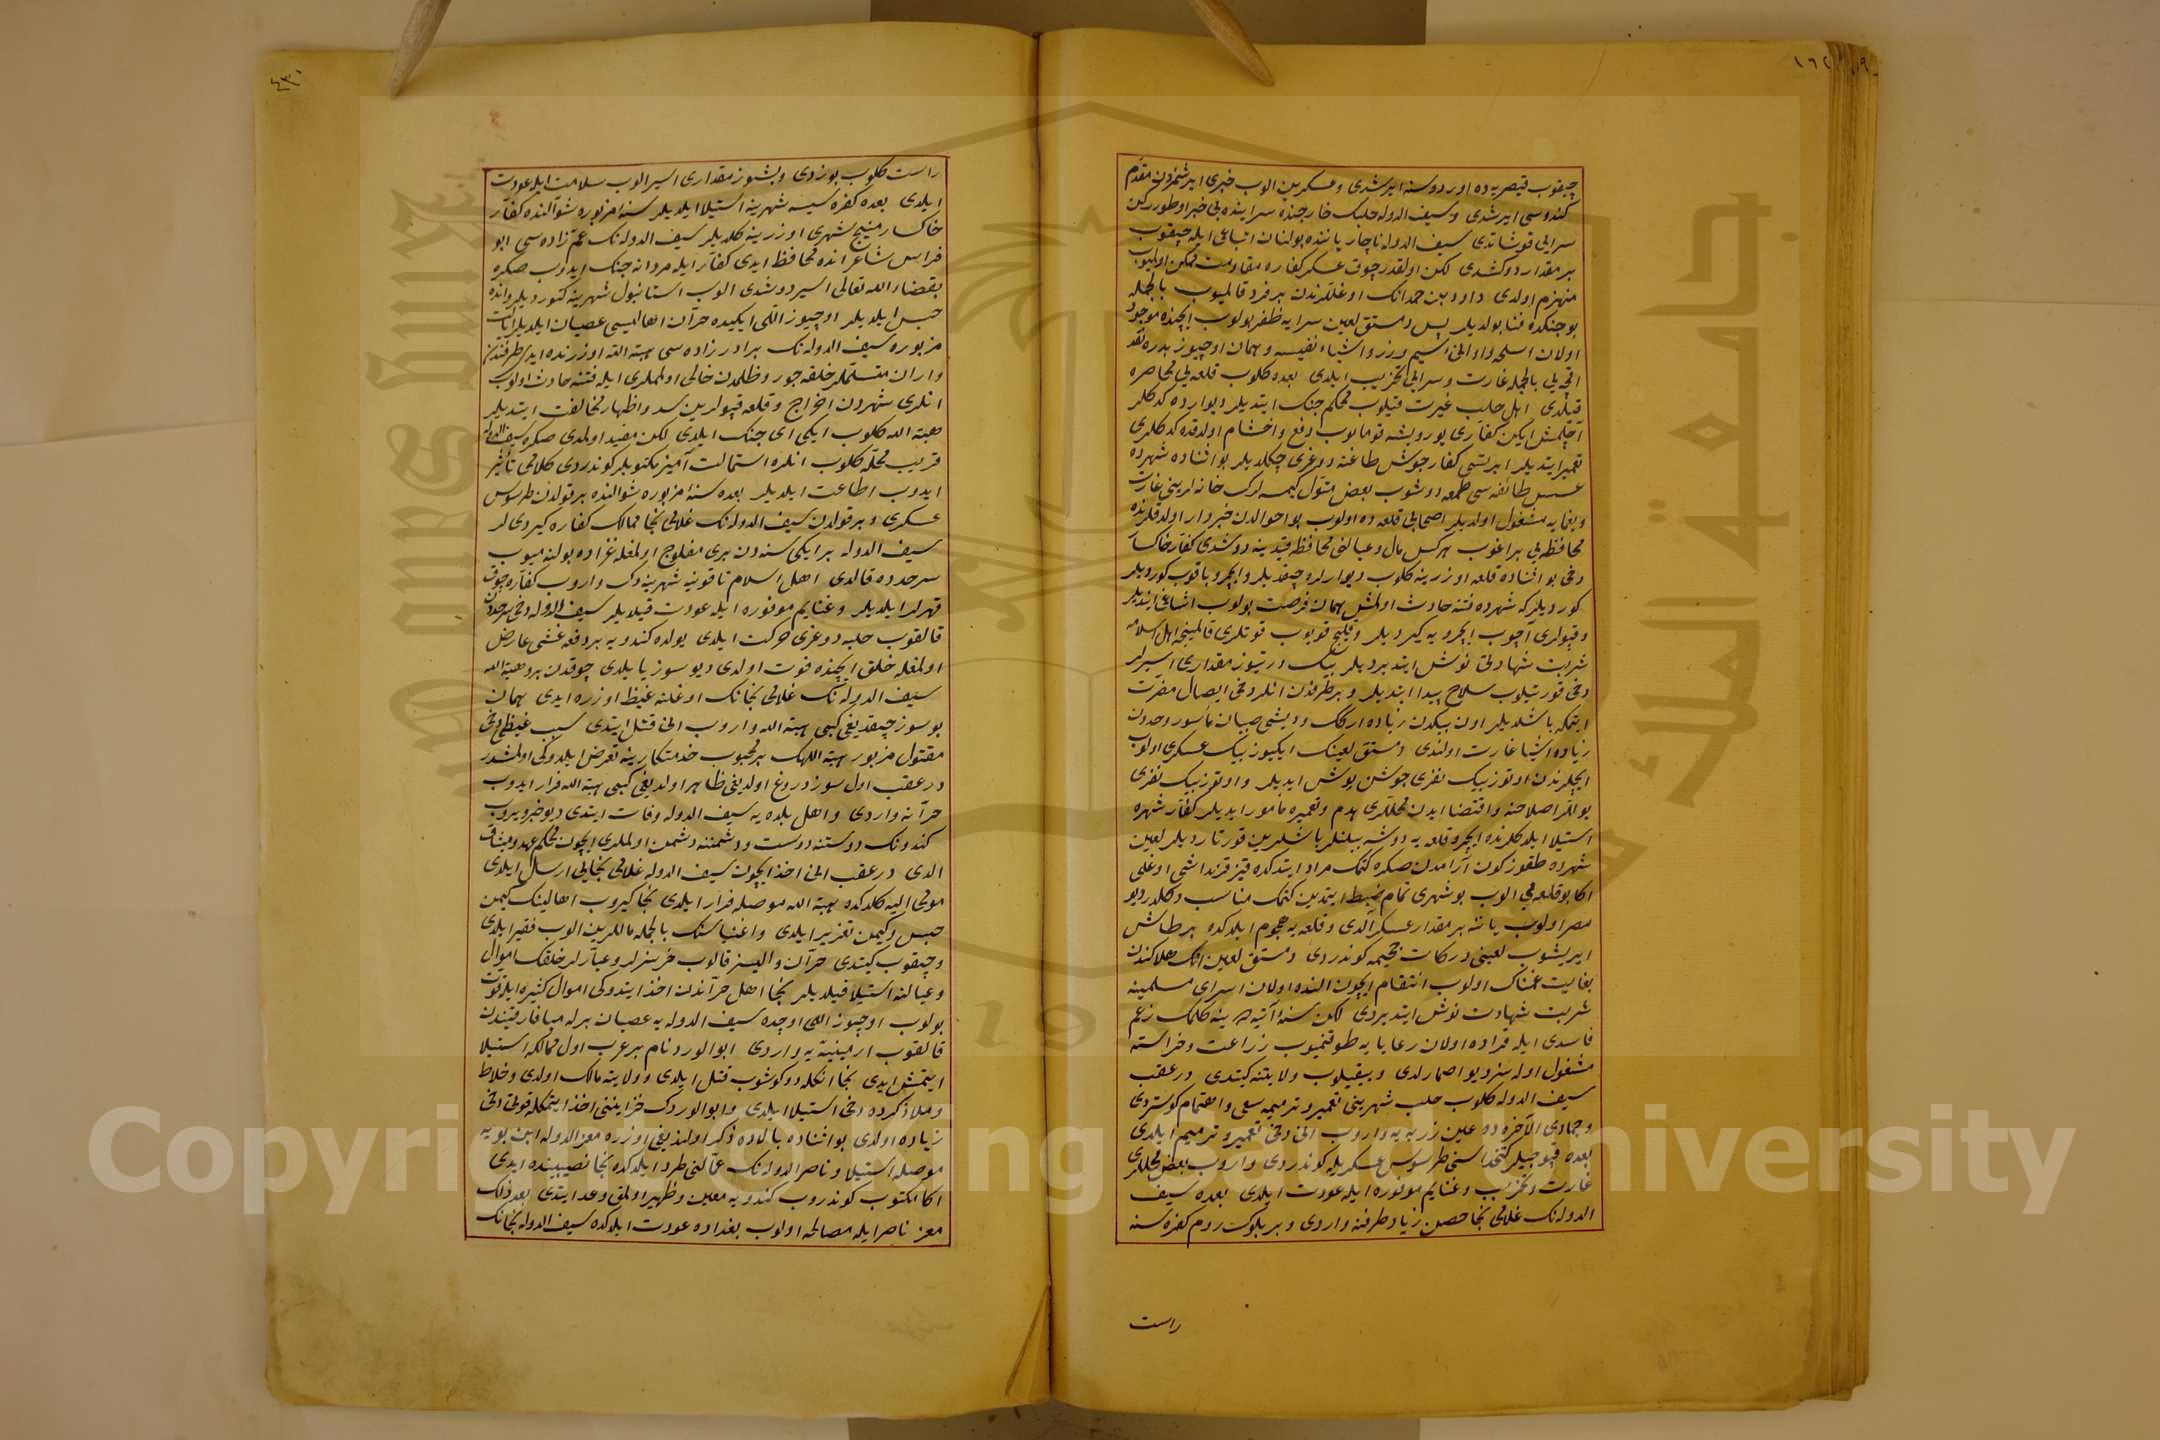 چیقوب قیصریه ده اوردوسنه ایرشدی وعسکرین الوب خبری ایرشمزدن مقدم
کندوسی ایرشدی وسیف الدوله حلبک خارجنده سراینده بی خبر اوطوررکن
سرایی قوشاتدی سیف الدوله ناچار یاننده بولنان اتباعی ایله چیقوب
بر مقدار دوکشدی لکن اولقدر چوق عسکر کفاره مقاومت ممکن اولمیوب
منهزم اولدی داود بن حمدانک اوغللرندن بر فرد قالمیوب بالجمله
بو جنکده فنا بولدیلر پس دمستق لعین سرایه ظفر بولوب ایچنده موجود
اولان اسلحه واوانئ سیم وزر واشیاء نفیسه وهمان اوچیوز بدره نقد
اقچه یی بالجمله غارت وسرایی تخریب ایلدی بعده کلوب قلعه یی محاصره
قیلدی اهل حلب غیرت قیلوب محکم جنک ایتدیلر دیوارده کدکلر
آچلمش ایکن کفاری یورویشه قومایوب دفع واخشام اولدقده کدکلری
تعمیر ایتدیلر ایرتسی کفار جوش طاغنه دوغری چکلدیلر بو اثناده شهرده
عسس طائفه سی طمعه دوشوب بعض متمول کیمسه لرک خانه لرینی غارت
ویغمایه مشغول اولدیلر اصحابی قلعه ده اولوب بو احوالدن خبردار اولدقلرنده
محافظه یی براغوب هرکس مال وعیالنی محافظه قیدینه دوشدی کفار خاکسار
دخی بو اثناده قلعه اوزرینه کلوب دیوارلره چیقدیلر وایچرو باقوب کوردیلر
کوردیلر که شهرده فتنه حادث اولمش همان فرصت بولوب اشاغی ایندیلر
وقپولری آچوب ایچرویه کیردیلر وقلیج قویوب قوتلری قالمینجه اهل اسلامه
شربت شهادتی نوش ایتدیردیلر بیک درتیوز مقداری اسیرلر
دخی قورتیلوب سلاح پیدا ایتدیلر وبر طرفدن انلر دخی ایصال مضرت
ایتمکه باشلدیلر اون بیکدن زیاده ارکک ودیشی صبیان مأسور وحددن
زیاده اشیا غارت اولندی دمستق لعینک ایکیوز بیک عسکری اولوب
ایچلرندن اوتوز بیک نفری جوشن پوش ایدیلر واوتوز بیک نفری
یوللر اصلاحنه واقتضا ایدن محللری هدم وتعمیره مأمور ایدیلر کفار شهره
استیلا ایلدکلرنده ایچرو قلعه یه دوشه بیلنلر باشلرین قورتاردیلر لعین
شهرده طقوز کون آرامدن صکره کتمک مراد ایتدکده قیز قرنداشی اوغلی
اکا بو قلعه یی الوب بو شهری تمام ضبط ایتمدین کتمک مناسب دکلدر دیو
مصر اولوب یاننه بر مقدار عسکر آلدی وقلعه یه هجوم ایلدکده بر طاش
ایریشوب لعینی درکات جحیمه کوندردی دمستق لعین انک هلاکندن
بغایت غمناک اولوب انتقام ایچون النده اولان اسرای مسلمینه
شربت شهادت نوش ایتدیردی لکن سنۀ آتیه ده ینه کلمک زعم
فاسدی ایله قراده اولان رعایایه طوقنمیوب زراعت وحراستنه
مشغول اوله سز دیو اصمارلدی وییقیلوب ولایتنه کیتدی درعقب
سیف الدوله کلوب حلب شهرینی تعمیر وترمیمه سعی واهتمام کوستردی
وجمادی الآخره ده عین زربه یه واروب انی دخی تعمیر وترمیم ایلدی
بعده قپوجیلر کتخداسنی طرسوس عسکریله کوندردی واروب بعض محللری
غارت وتخریب وغنایم موفوره ایله عودت ایلدی بعده سیف
الدوله نک غلامی نجا حصن زیاد طرفنه واردی وبر بلوک روم کفره سنه
راست
راست کلوب بوزدی وبشیوز مقداری اسیر الوب سلامت ایله عودت
ایلدی بعده کفره سیسه شهرینه استیلا ایلدیلر سنۀ مزبوره شوالنده کفار
خاکسار منبج شهری اوزرینه کلدیلر سیف الدوله نک عم زاده سی ابو
فراس شاعر انده محافظ ایدی کفار ایله مردانه جنک ایدوب صکره
بقضاء الله تعالی اسیر دوشدی الوب استانبول شهرینه کتوردیلر وانده
حبس ایلدیلر اوچیوز اللی ایکیده حران اهالیسی عصیان ایلدیلر
مزبوره سیف الدوله نک برادرزاده سی هبة الله اوزرنده ایدی طرفندن
واران متسلملر خلقه جور وظلمدن خالی اولماملری ایله فتنه حادث اولوب
انلری شهردن اخراج وقلعه قپولرین سد واظهار مخالفت ایتدیلر
هبة الله کلوب ایکی ای جنک ایلدی لکن مفید اولمدی صکره سیف الدوله
قریب محله کلوب انلره استمالت آمیز مکتوبلر کوندردی کلامی تأثیر
ایدوب اطاعت ایلدیلر بعده سنۀ مزبوره شوالنده بر قولدن طرسوس
عسکری وبر قولدن سیف الدوله نک غلامی نجا ممالک کفاره کیردیلر
سیف الدوله بر ایکی سنه دن بری مفلوج اولمغله غزاده بولنه میوب
سرحدده قالدی اهل اسلام تا قونیه شهرینه دک واروب کفاره چوق
قهرلر ایلدیلر وغنایم موفوره ایله عودت قیلدیلر سیف الدوله دخی سرحددن
قالقوب حلبه دوغری حرکت ایلدی یولده کندویه بر دفعه غشی عارض
اولمغله خلق ایچنده فوت اولدی دیو سوز یایلدی چوقدن برو هبة الله
سیف الدوله نک غلامی نجانک اوغلنه غیظ اوزره ایدی همان
بو سوز چیقدیغی کبی هبة الله واروب انی قتل ایتدی سبب غیظی دخی
مقتول مزبور هبة اللهک بر محبوب خدمتکارینه تعرض ایلدوکی اولمشدر
درعقب اول سوز دروغ اولدیغی ظاهر اولدیغی کبی هبة الله فرار ایدوب
حرانه واردی واهل بلده یه سیف الدوله وفات ایتدی دیو خبر ویروب
کندونک دوستنه دوست ودشمننه دشمن اولملری ایچون محکم عهد ومیثاق
الدی درعقب انی اخذ ایچون سیف الدوله غلامی نجایی ارسال ایلدی
مومی الیه کلدکده هبة الله موصله فرار ایلدی نجا کیروب اهالینک کیمن
حبس وکیمن تعزیر ایلدی واغنیاسنک بالجمله ماللرین الوب فقیر ایلدی
وچیقوب کیتدی حران والیسز قالوب خرسزلر وعیارلر خلقک اموال
وعیالنه استیلا قیلدیلر نجا اهل حراندن اخذ ایتدوکی اموال کثیره ایله قوت
بولوب اوچیوز اللی اوچده سیف الدوله یه عصیان برله میافارقیندن
قالقوب ارمینیه یه واردی ابو الورد نام بر عرب اول ممالکه استیلا
ایتمش ایدی نجا انکله دوکوشوب قتل ایلدی وولایته مالک اولدی وخلاط
وملازکرده دخی استیلا ایلدی وابو الوردک خزایننی اخذ ایتمکله قوتی دخی
زیاده اولدی بو اثناده بالاده ذکر اولندیغی اوزره معز الدوله ابن بویه
موصله استیلا وناصر الدوله نک عمالنی طرد ایلدکده نجا نصیبینده ایدی
اکا مکتوب کوندروب کندویه معین وظهیر اولمق وعد ایتدی بعد ذلک
معز ناصر ایله مصالحه اولوب بغداده عودت ایلدکده سیف الدوله نجانک